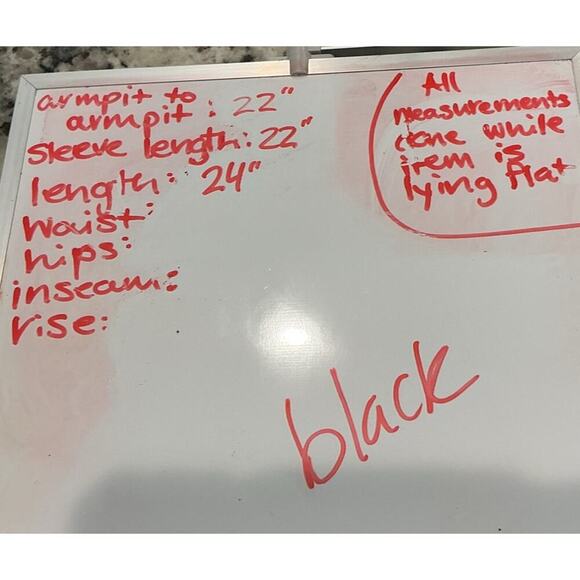 armpit to
armpit: 22"
sleeve length: 22"
length: 24"
waist:
hips:
inseam:
rise:
All
measurements
done while
item is
lying flat
black